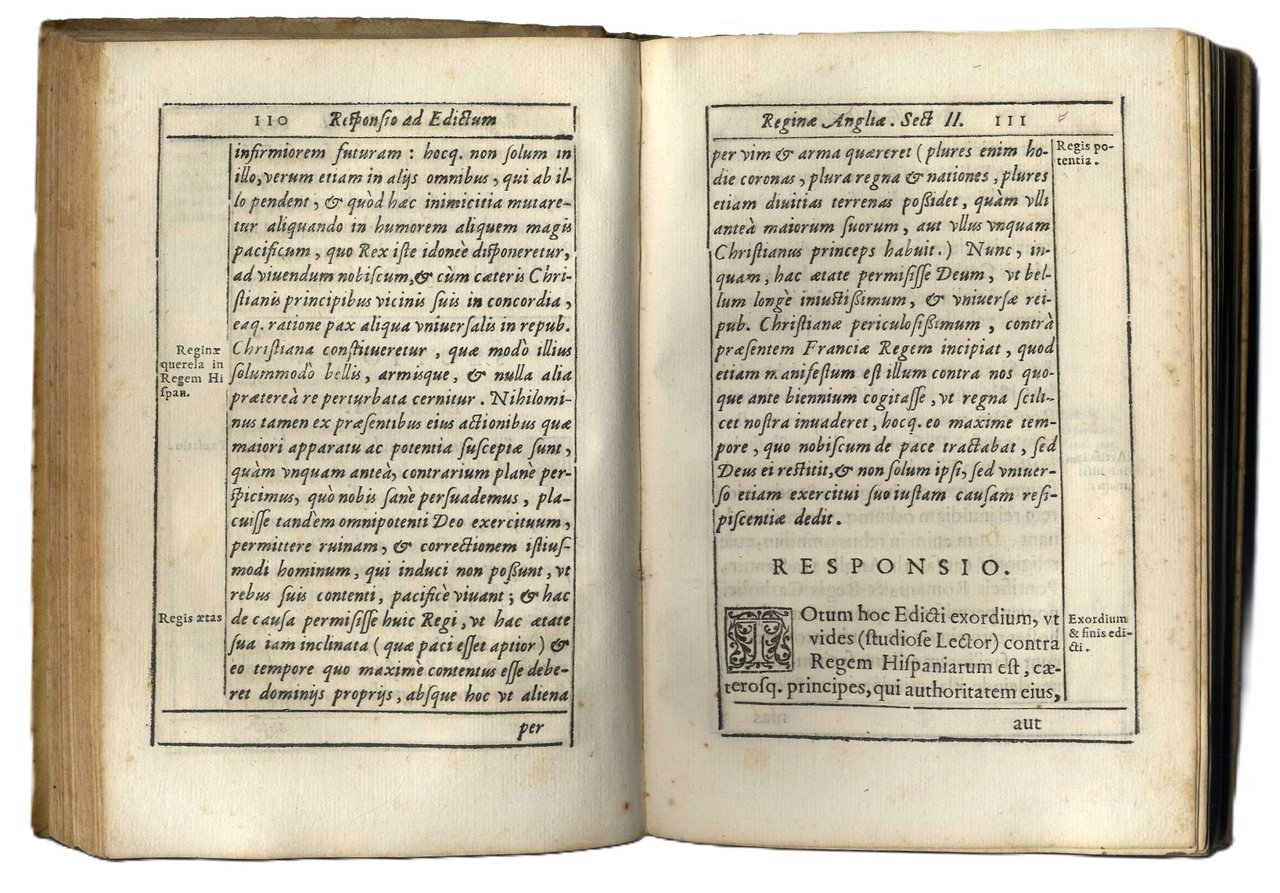 110 Responsio ad Edictum
infirmiorem futuram : hocq. non solum in
illo, verum etiam in alijs omnibus, qui ab il-
lo pendent, & quòd hæc inimicitia mutare-
tur aliquando in humorem aliquem magis
pacificum, quo Rex iste idoneè disponeretur,
ad viuendum nobiscum, & cùm cæteris Chri-
stianis principibus vicinis suis in concordia,
eaq. ratione pax aliqua vniuersalis in repub.
Christiana constitueretur, quæ modò illius
solummodò bellis, armisque, & nulla alia
prætereà re perturbata cernitur. Nihilomi-
nus tamen ex præsentibus eius actionibus quæ
maiori apparatu ac potentia susceptæ sunt,
quàm vnquam anteà, contrarium planè per-
spicimus, quò nobis sanè persuademus, pla-
cuisse tandem omnipotenti Deo exercituum,
permittere ruinam, & correctionem istius-
modi hominum, qui induci non possunt, vt
rebus suis contenti, pacificè viuant; & hac
de causa permisisse huic Regi, vt hac ætate
sua iam inclinata (quæ paci esset aptior) &
eo tempore quo maximè contentus esse debe-
ret dominijs proprijs, absque hoc vt aliena
per
Reginæ
querela in
Regem Hi
span.
Regis ætas
Reginæ Angliæ. Sect II. 111
per vim & arma quæreret (plures enim ho-
die coronas, plura regna & nationes, plures
etiam diuitias terrenas possidet, quàm vlli
anteà maiorum suorum, aut vllus vnquam
Christianus princeps habuit.) Nunc, in-
quam, hac ætate permisisse Deum, vt bel-
lum longè iniustissimum, & vniuersæ rei-
pub. Christianæ periculosissimum, contrà
præsentem Franciæ Regem incipiat, quod
etiam manifestum est illum contra nos quo-
que ante biennium cogitasse, vt regna scili-
cet nostra inuaderet, hocq. eo maxime tem-
pore, quo nobiscum de pace tractabat, sed
Deus ei restitit, & non solum ipsi, sed vniuer-
so etiam exercitui suo iustam causam resi-
piscentiæ dedit.
RESPONSIO.
TOtum hoc Edicti exordium, vt
vides (studiose Lector) contra
Regem Hispaniarum est, cæ-
terosq. principes, qui authoritatem eius,
aut
Regis po-
tentia.
Exordium
& finis edi-
cti.